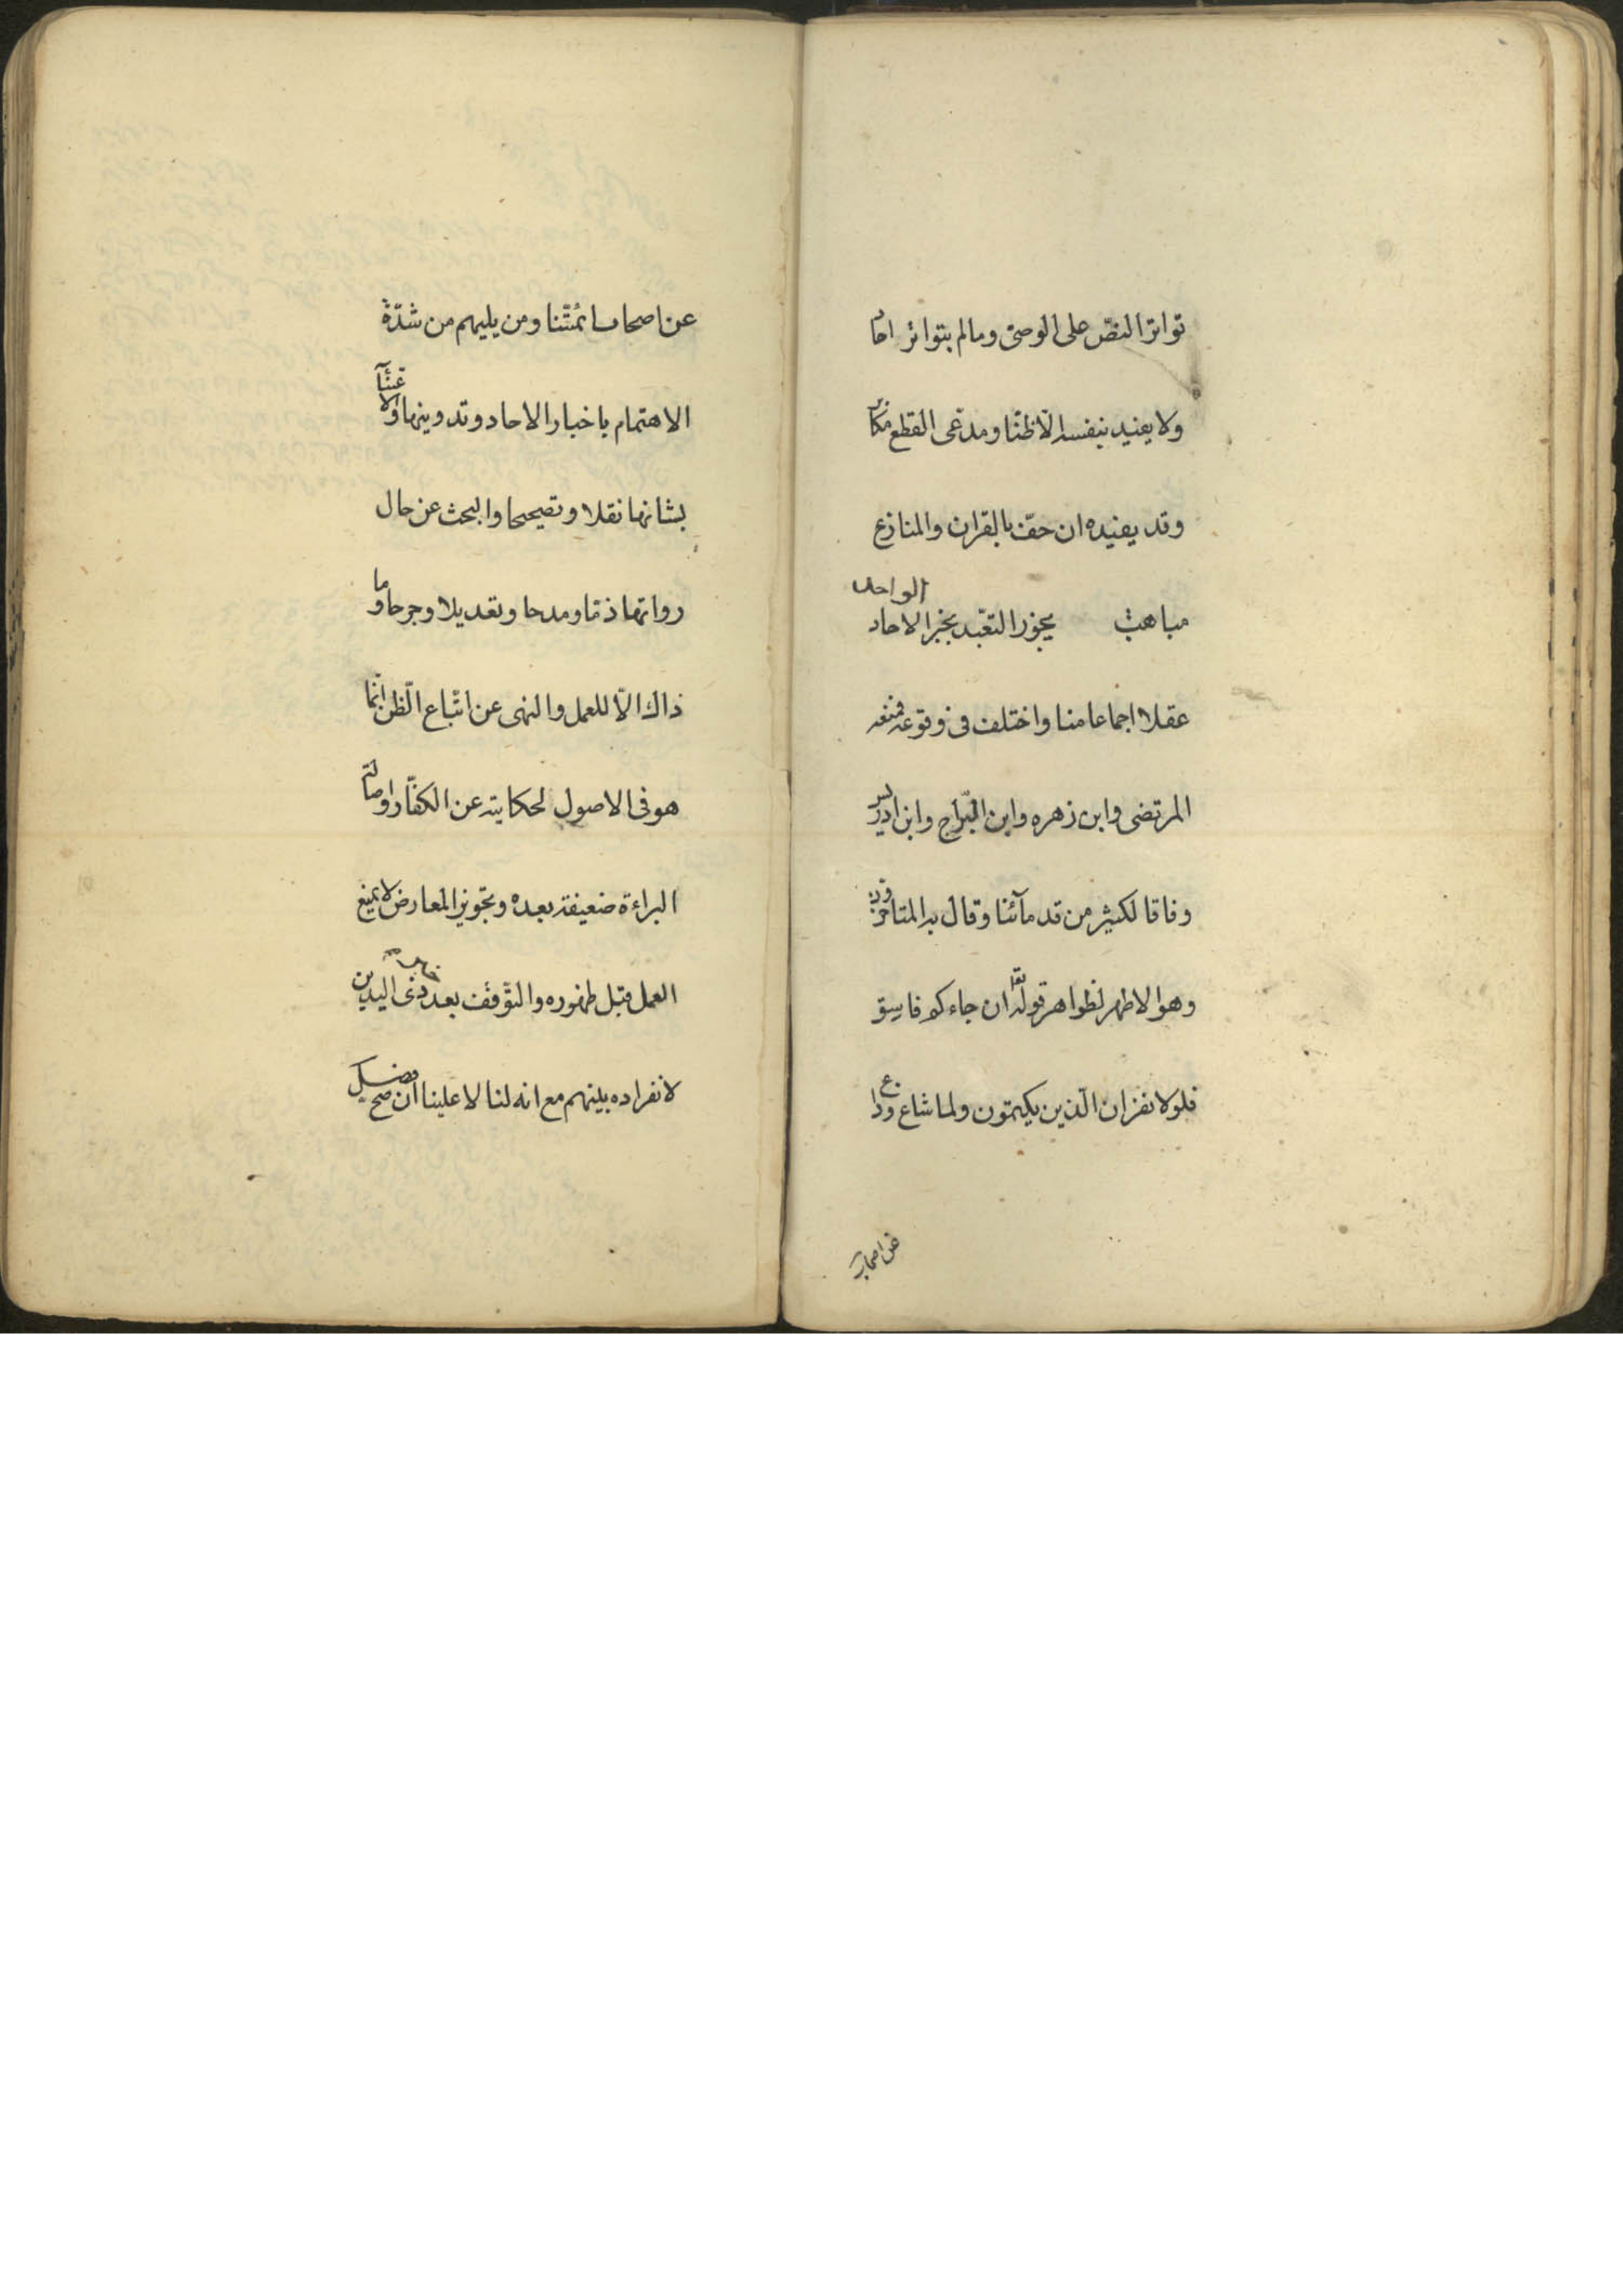 تواتر النصّ على الوصىّ ومالم يتواتر احاد
ولا يفيد بنفسه الّا ظنّا ومدّعى القطع مكابر
وقد يفيده ان حفّ بالقراين والمنازع
الواحد
مباهت يجوز التعّبد بخبر الاحاد
عقلا اجماعا منا واختلف فى وقوعه فمنعه
المرتضى وابن زهره وابن البّراج وابن ادريس
وفاقا لكثير من قدمآئنا وقال به المتاخرون
وهو الاظهر لظواهر قوله تعا ان جاءكم فاسق
فلولا نفر ان الّذين يكتمون ولما شاع وذاع
عن اصحاب
عن اصحاب ائمّتنا ومن يليهم من شدّة
الاهتمام باخبار الاحاد وتدوينها والاعتنآء
بشانها نقلا وتصحيحا والبحث عن حال
رواتها ذمّا ومدحا وتعديلا وجرحا وما
ذاك الّا للعمل والنهى عن اتّباع الّظن انّما
هو فى الاصول لحكايته عن الكفّار واصالة
البراءة ضعيفة بعده وتجّويز المعارض لا يمنع
العمل قبل ظهوره والتوّقف بعد ذى اليدين
لانفراده بينهم مع انه لنا لا علينا ان صح